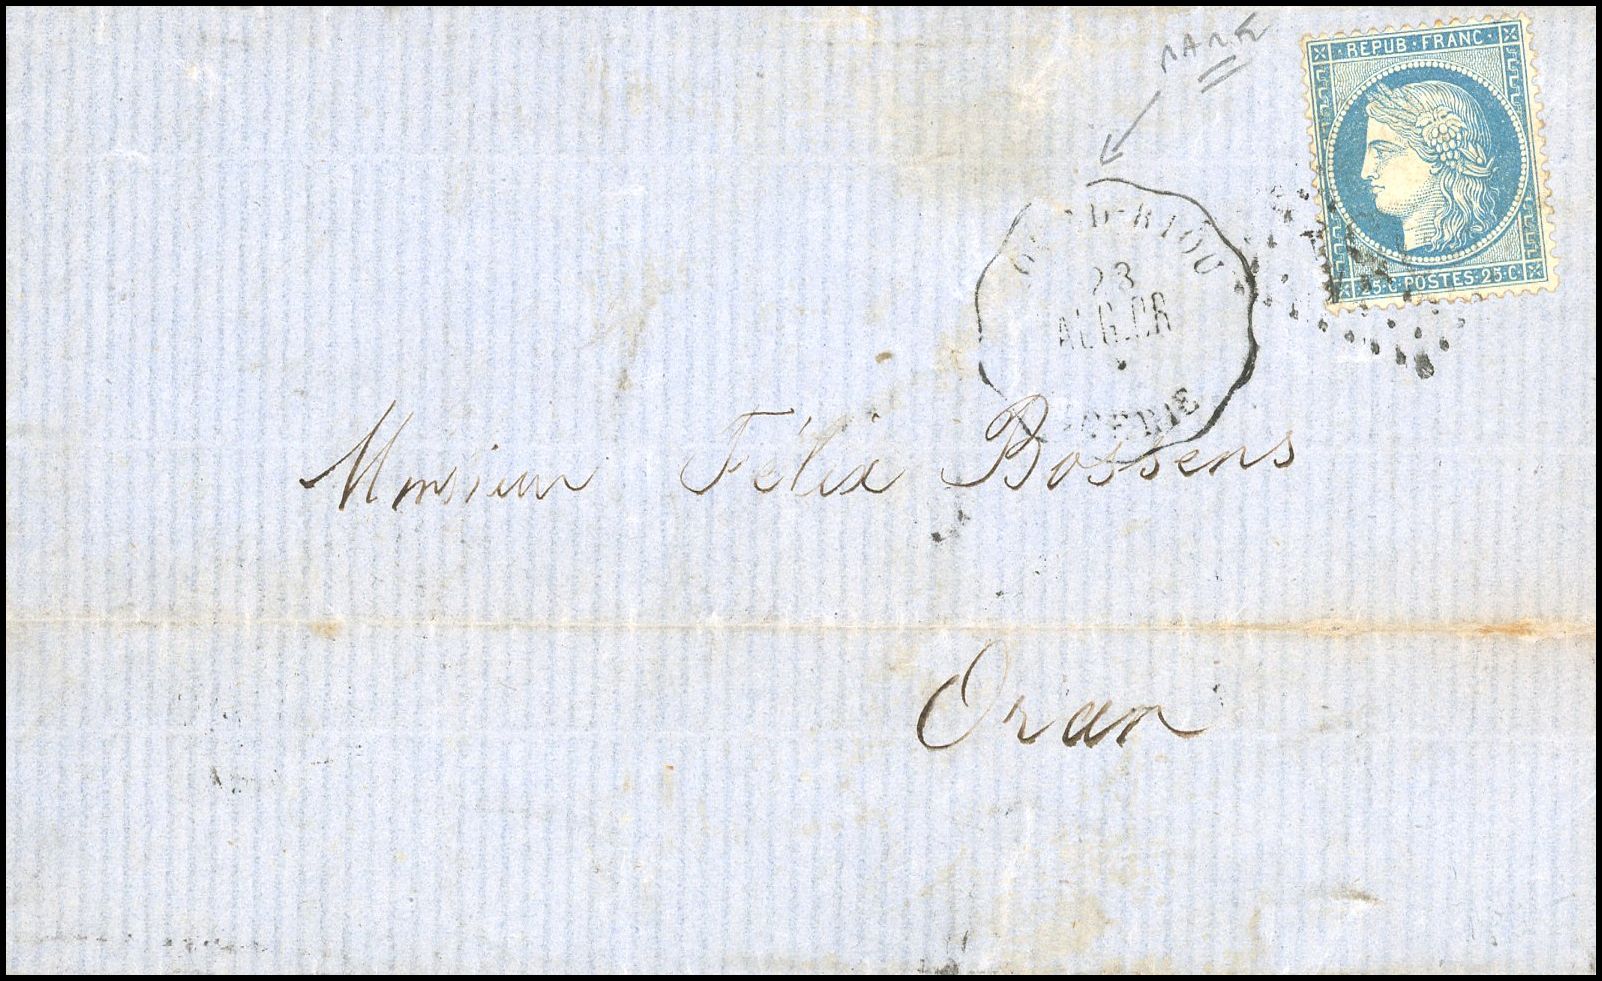 RARE
REPUB·FRANC·
25·C·POSTES·25·C·
RIOU
23
ALG.OR
Monsieur Félix Bossens
Oran